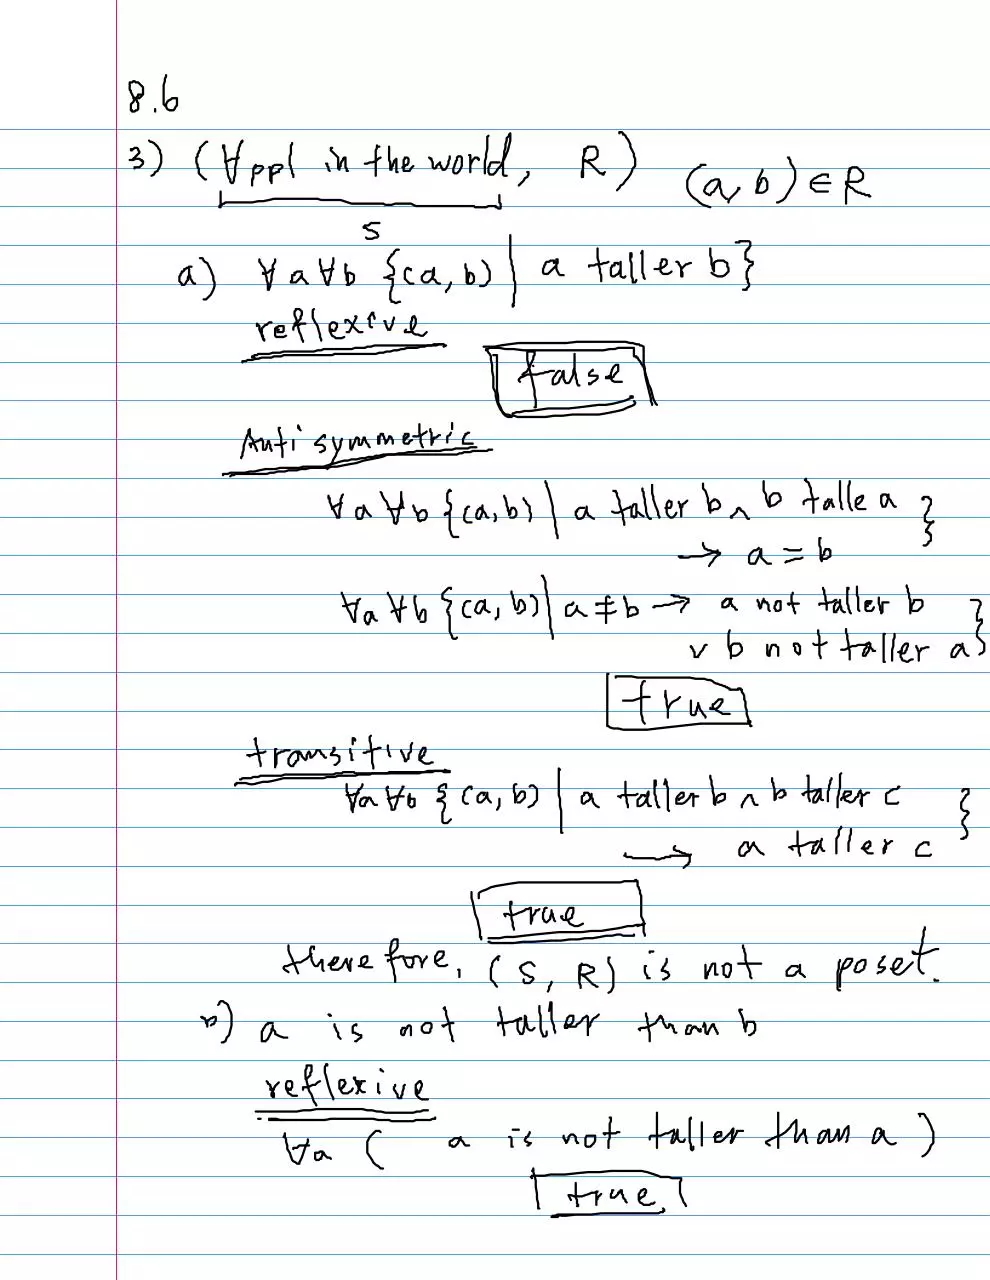 8.6
3) (∀ppl in the world, R) (a, b) ∈ R
S
a) ∀a∀b {(a, b) | a taller b}
reflexive
false
Anti symmetric
∀a∀b {(a, b) | a taller b ∧ b talle a }
→ a = b
∀a ∀b {(a, b) | a ≠ b → a not taller b
∨ b not taller a }
true
transitive
∀a∀b {(a, b) | a taller b ∧ b taller c }
→ a taller c
true
therefore, (S, R) is not a poset.
b) a is not taller than b
reflexive
∀a ( a is not taller than a )
true